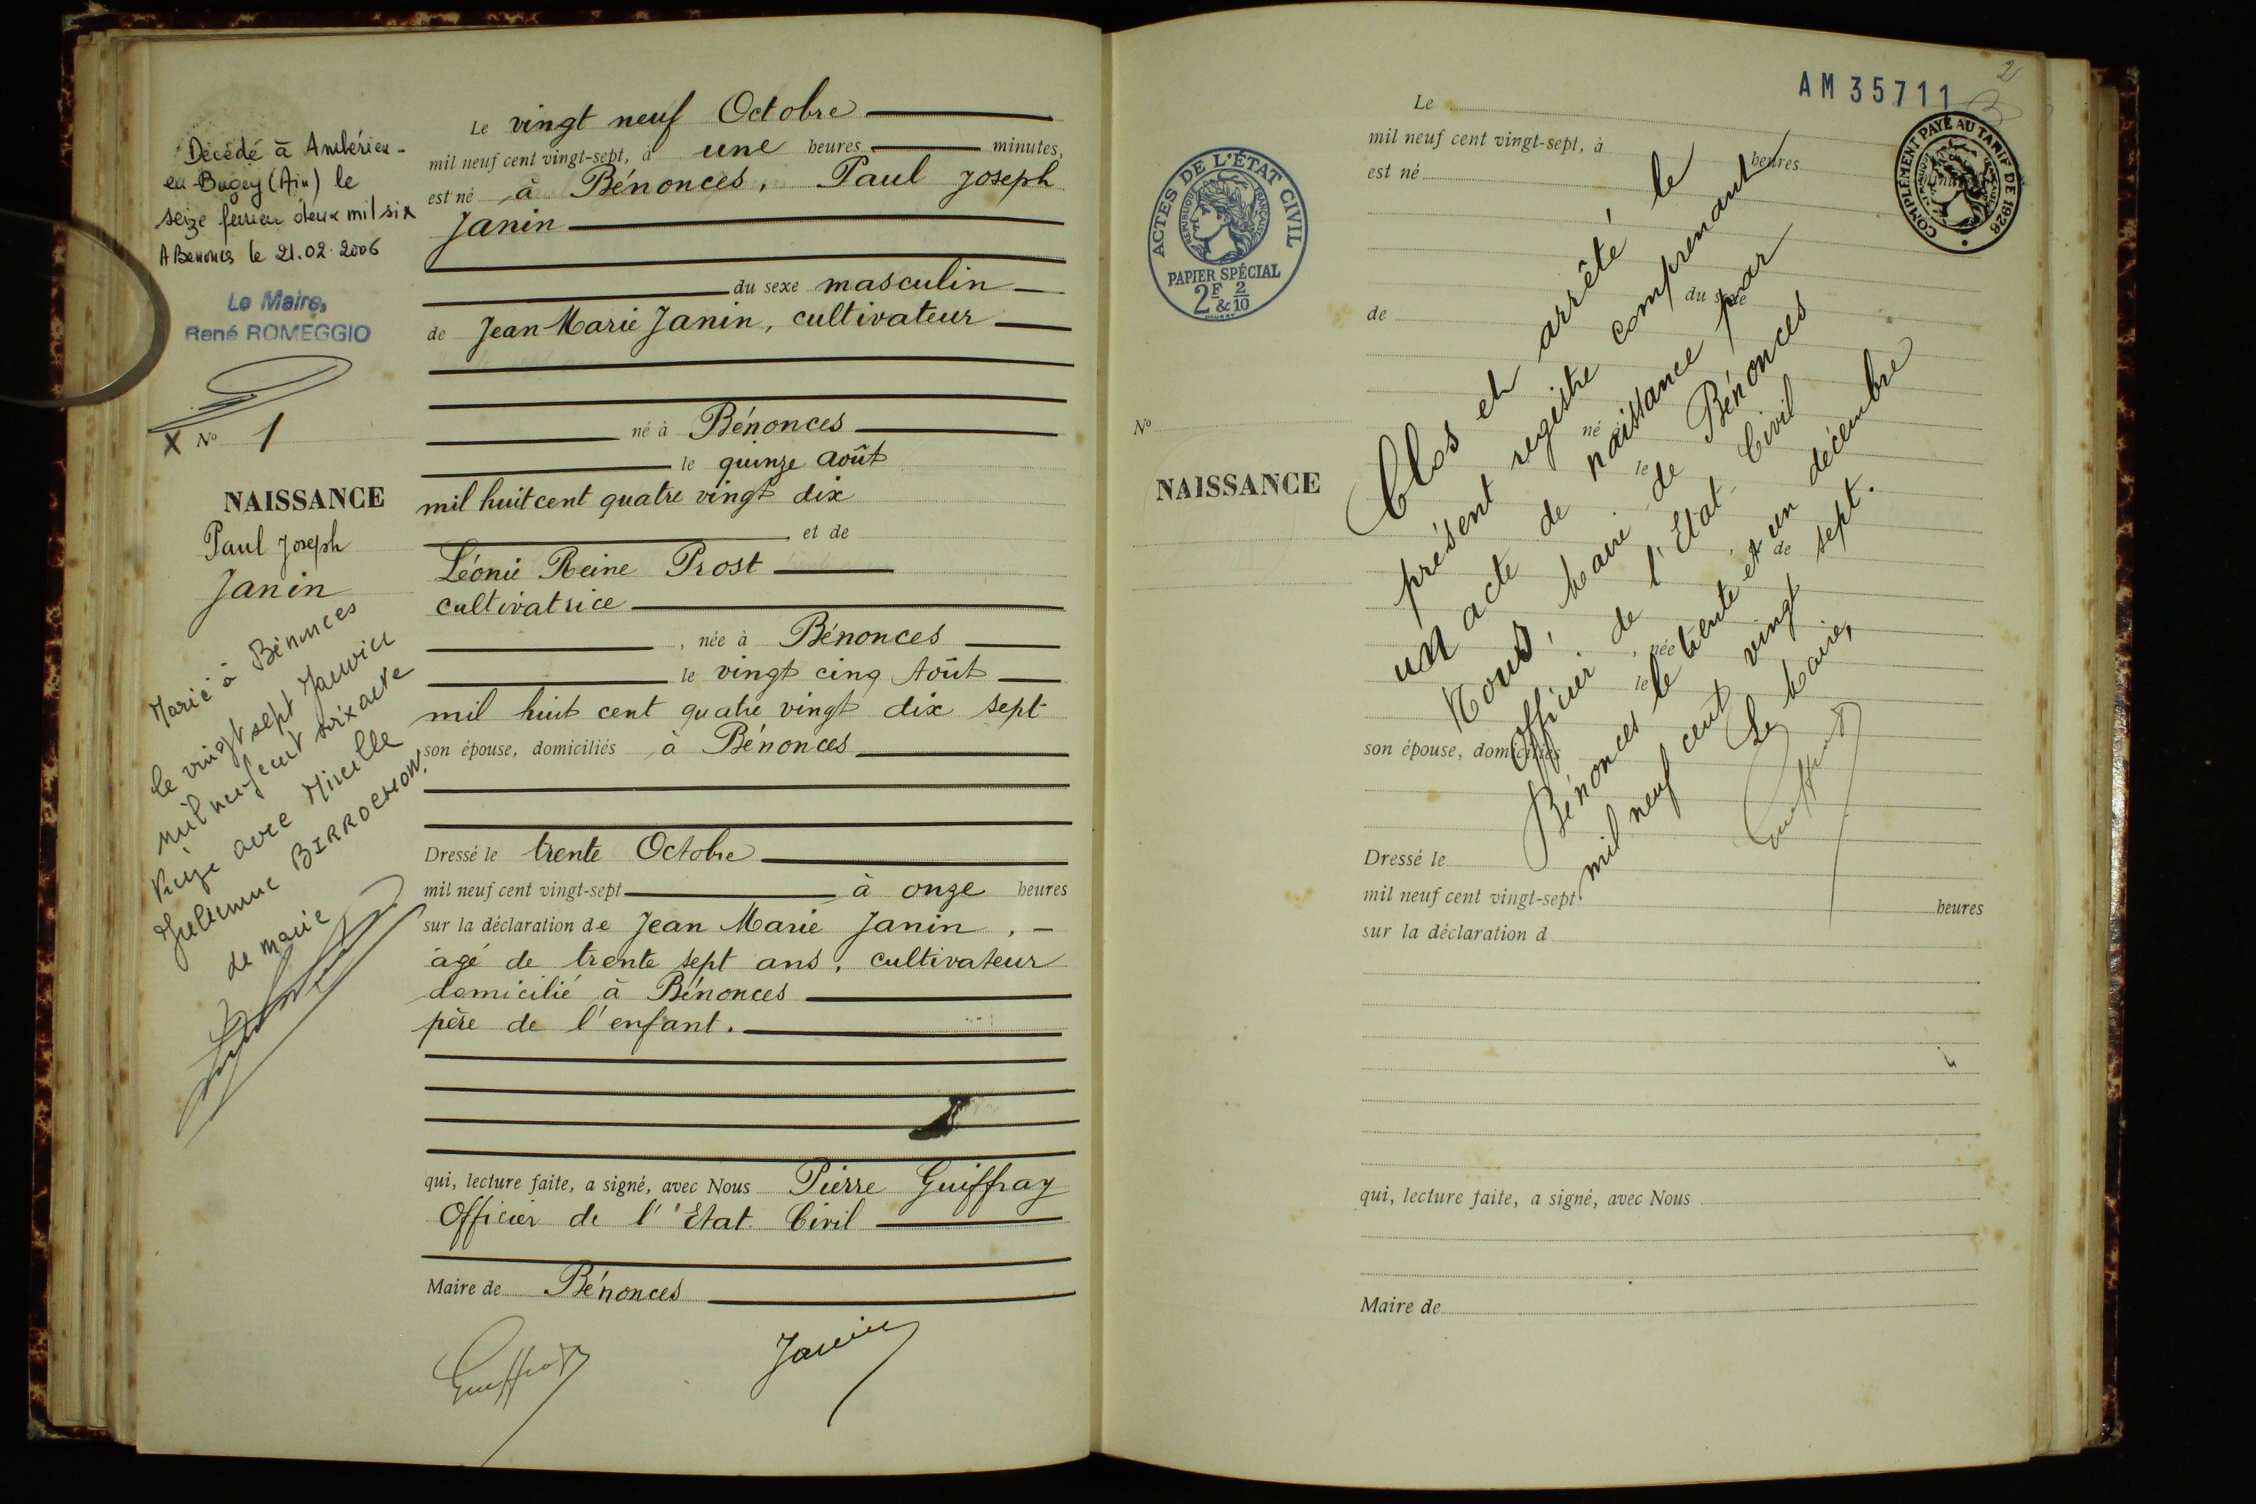 Décédé à Ambérieu-
en-Bugey (Ain) le
seize février deux mil six
A Benonces le 21.02.2006
Le Maire,
René ROMEGGIO
N° 1
NAISSANCE
Paul Joseph
Janin
Marié à Bénonces
le vingt sept Janvier
mil neuf cent six acte
avec Mireille
Julienne BIRROCHON.
de marie
Le vingt neuf Octobre
mil neuf cent vingt-sept, à une heures minutes,
est né à Bénonces, Paul Joseph
Janin
du sexe masculin
de Jean Marie Janin, cultivateur
né à Bénonces
le quinze août
mil huit cent quatre vingt dix
et de
Léonie Reine Prost
cultivatrice
, née à Bénonces
le vingt cinq Août
mil huit cent quatre vingt dix sept
son épouse, domiciliés à Bénonces
Dressé le trente Octobre
mil neuf cent vingt-sept à onze heures
sur la déclaration de Jean Marie Janin,
âgé de trente sept ans, cultivateur
domicilié à Bénonces
père de l'enfant.
qui, lecture faite, a signé, avec Nous Pierre Guiffray
Officier de l'Etat Civil
Maire de Bénonces
Guiffray
Janin
2
AM 35711
COMPLÉMENT PAYÉ AU TARIF DE 1926
ACTES DE L'ÉTAT CIVIL
RÉPUBLIQUE FRANÇAISE
PAPIER SPÉCIAL
2F & 2/10
N°
NAISSANCE
Le
mil neuf cent vingt-sept, à heures
est né
du sexe
de
né à
le
et de
, née
le
son épouse, domiciliés
Dressé le
mil neuf cent vingt-sept heures
sur la déclaration d
qui, lecture faite, a signé, avec Nous
Maire de
Clos et arrêté le
présent registre comprenant
un acte de naissance par
Nous, Maire de Bénonces
Officier de l'Etat Civil
Bénonces le trente et un décembre
mil neuf cent vingt sept.
Le Maire,
Guiffray